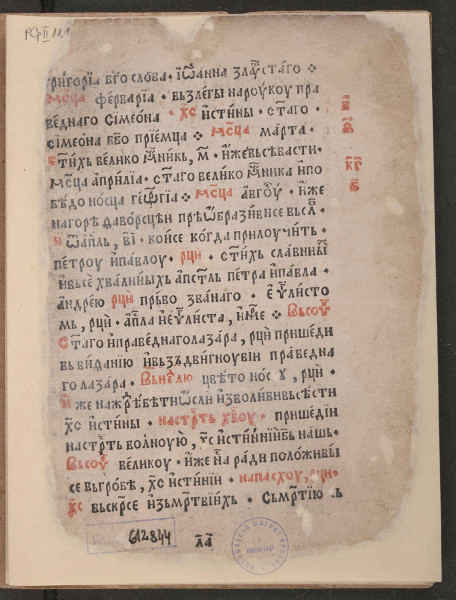 РСр II 11.1
григорїа бг҃о слова · іѡ҃анна злат҇оу́стаго ⁘
мс҃ца феврарїа · възлегы нароукоу пра
веднаго сімеѡна · хс҃ истины · стаго
сімеона бг҃о прїемца ⁘ мс҃ца марта ·
стихь велико мч҃никь, м҃ · иже въ севасти ·
мс҃ца априлїа · стаго велико мч҃ника и по
бѣдо носца геѡргїа · мс҃ца авгоу · иже
на горѣ фаворсцеи прѣѡбразивисе въ сл҃ ·
и ап҃ль, в҃і · кои се когда прилоучить ·
петроу и павлоу · рци · стихь славныи
и въсе хвалныхь апс҃тль петра и павла ·
андрею рци прьво званаго · еу҃листо
мь, рци · ап҃ла и еу҃листа, име · Въ соу
стаго и праведнаго лазара, рци пришеди
въ виѳанїю и въздвигноуви праведна
го лазара · Въ нелю цвѣто носоу, рци ·
иже на жрѣбети ѡсли изволививьсѣсти
хс҃ истины · на стрть хв҃оу · пришедїи
на стрть волноую, хс҃ истинныи бь нашь ·
Въ соу великоу · иже на ради положивы
се въ гробѣ, хс҃ истиній · на пасхоу, рци ·
хс҃ въскр҃се изь мр҃твїихь · съмрьтїю ь
в҃
а҃
кг҃
б
612844
л҃а